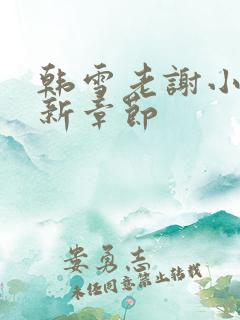 韩雪老謝小
新章節
娄勇志
未经同意禁止转载